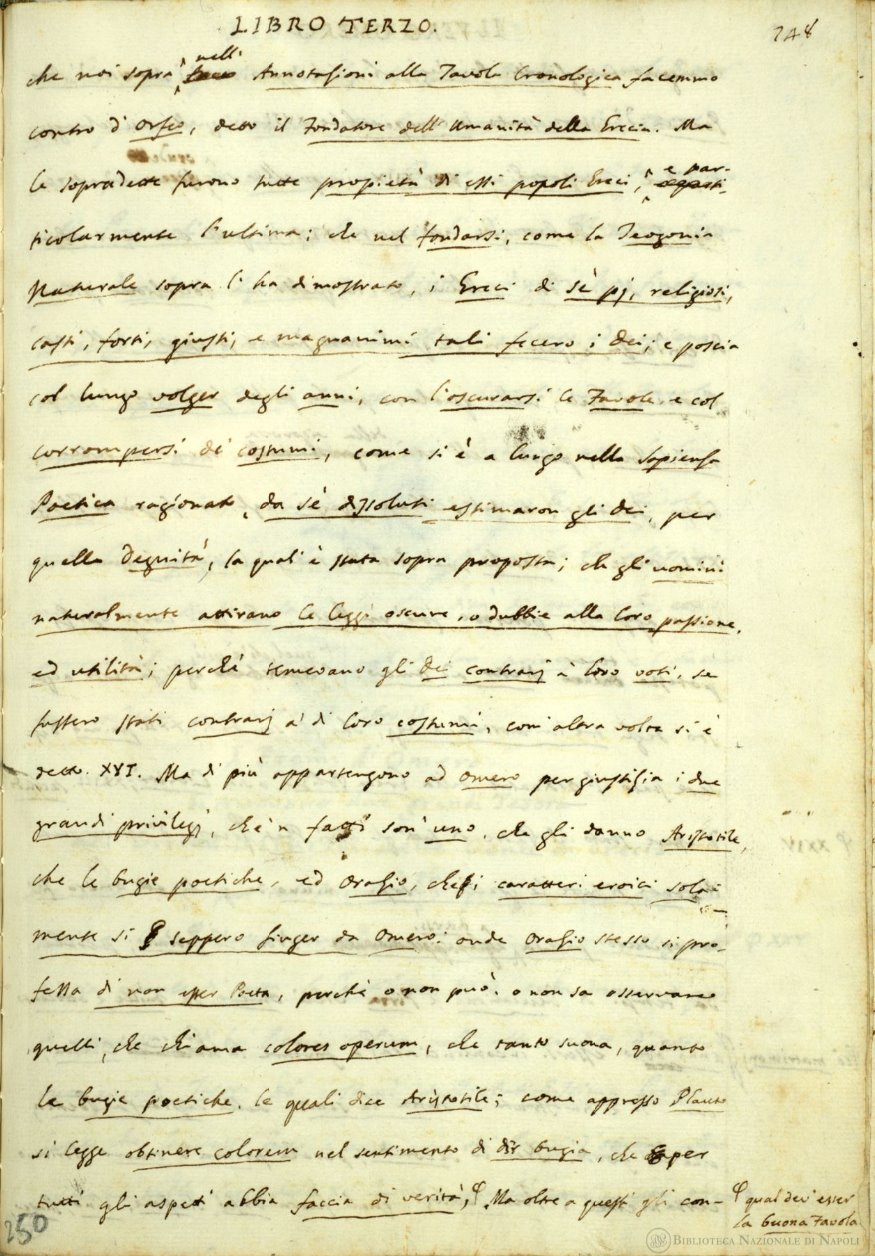 LIBRO TERZO.
248
che noi sopra nell' Annotazioni alla Tavola Cronologica facemmo
contro d' Orfeo, detto il Fondatore dell' Umanità della Grecia. Ma
le sopradette furono tutte propietà di essi popoli Greci, e par-
ticolarmente l' ultima: che nel fondarsi, come la Teogonia
Naturale sopra l' ha dimostrato, i Greci di sè pj, religiosi,
casti, forti, giusti, e magnanimi tali fecero i Dei; e poscia
col lungo volger degli anni, con l'oscurarsi le Favole, e col
corrompersi de' costumi, come si è a lungo nella Sapienza
Poetica ragionato, da sè dissoluti estimaron gli Dei, per
quella Degnità, la qual' è stata sopra proposta; che gli uomini
naturalmente attirano le leggi oscure, o dubbie alla loro passione,
ed utilità; perchè temevano gli Dei contrarj a' loro voti, se
fussero stati contrarj a' di loro costumi, com' altra volta si è
detto. XXI. Ma di più appartengono ad Omero per giustizia i due
grandi privilegj, che 'n fatti son' uno, che gli danno Aristotile,
che le bugie poetiche, ed Orazio, che i caratteri eroici sola-
mente si seppero finger da Omero: onde Orazio stesso si pro-
fessa di non esser Poeta, perchè o non può, o non sa osservare
quelli, che chiama colores operum, che tanto suona, quanto
le bugie poetiche, le quali dice Aristotile; come appresso Plauto
si legge obtinere colorem nel sentimento di dir bugia, che per
tutti gli aspetti abbia faccia di verità, φ Ma oltre a questi gli con-
φ qual dev' esser
la buona Favola
250
BIBLIOTECA NAZIONALE DI NAPOLI